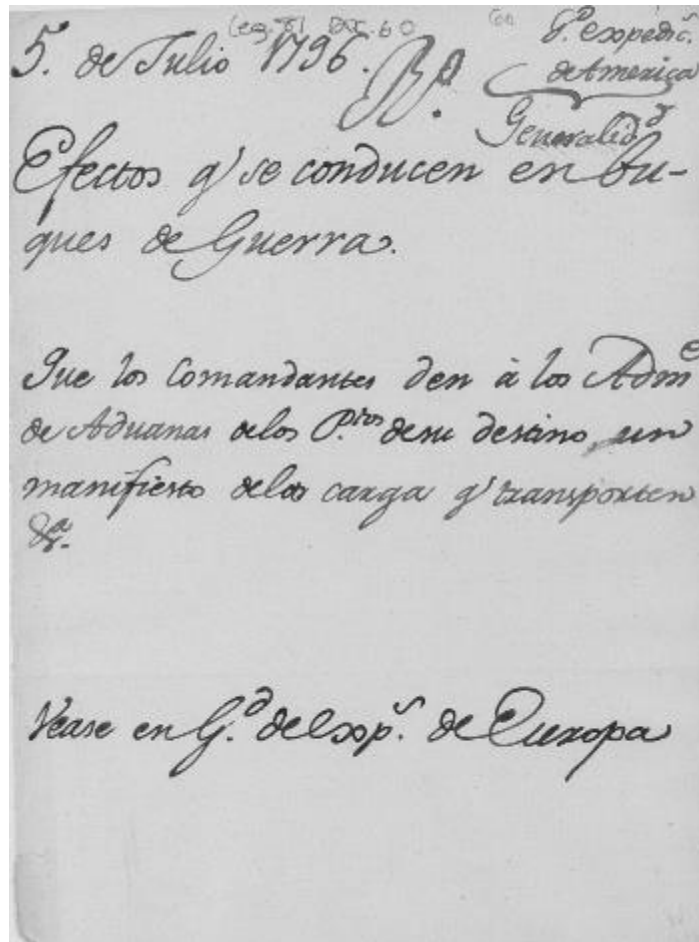 (Leg. 51 Doc. 60
5. de Julio 1796. Rl.
Gl. expedic.s
de America
Generalid.d
Efectos q.' se conducen en bu-
ques de Guerra.
Que los Comandantes den à los Adm.es
de Aduanas delos P.tos desu destino un
manifiesto dela carga q.' transporten
&.a
Vease en G.d de exp.s de Europa